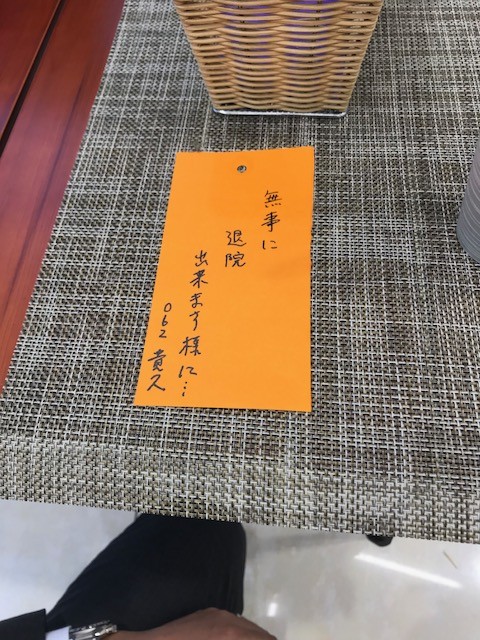 無事に
退院
出来ます様に…
062 貴久